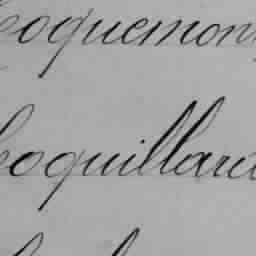 Coquemont
Coquillard